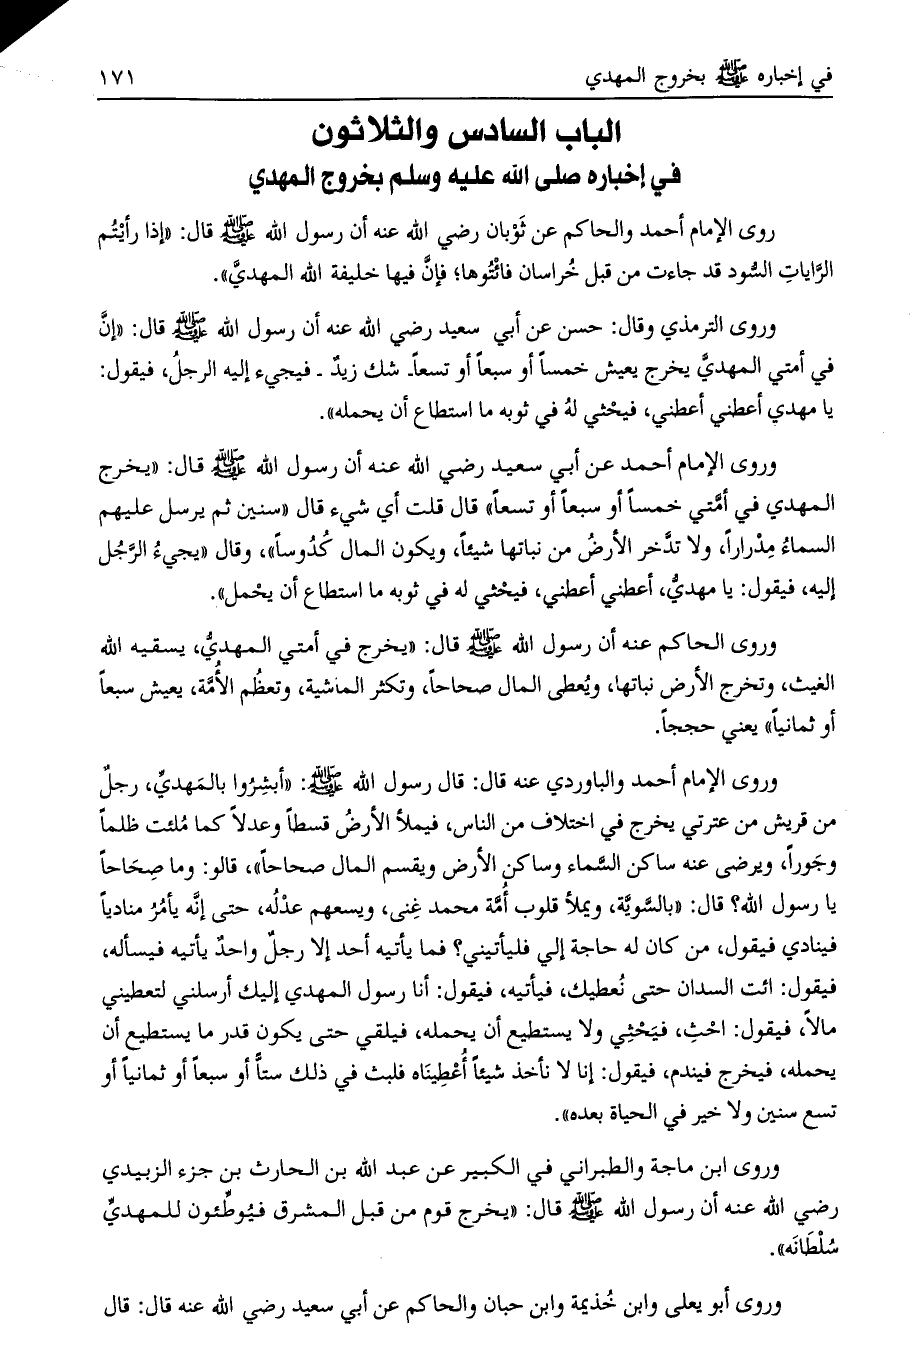 في إخباره ﷺ بخروج المهدي ١٧١
الباب السادس والثلاثون
في إخباره صلى الله عليه وسلم بخروج المهدي
روى الإمام أحمد والحاكم عن ثَوْبان رضي الله عنه أن رسول الله ﷺ قال: «إذا رأيْتُم
الرَّاياتِ السُّود قد جاءت من قبل خُراسان فائْتُوها؛ فإنَّ فيها خليفة الله المهديَّ».
وروى الترمذي وقال: حسن عن أبي سعيد رضي الله عنه أن رسول الله ﷺ قال: «إنَّ
في أمتي المهديَّ يخرج يعيش خمساً أو سبعاً أو تسعاً۔ شك زيدٌ ۔ فيجيء إليه الرجلُ، فيقول:
يا مهدي أعطني أعطني، فيحْثي لهُ في ثوبه ما استطاع أن يحمله».
وروى الإمام أحمد عن أبي سعيد رضي الله عنه أن رسول الله ﷺ قال: «يخرج
المهدي في أمَّتي خمساً أو سبعاً أو تسعاً» قال قلت أي شيء قال «سنين ثم يرسل عليهم
السماءُ مِدْراراً، ولا تدَّخر الأرضُ من نباتها شيئاً، ويكون المال كُدُوساً»، وقال «يجيءُ الرَّجُل
إليه، فيقول: يا مهديُّ، أعطني أعطني، فيحْثي له في ثوبه ما استطاع أن يحْمل».
وروى الحاكم عنه أن رسول الله ﷺ قال: «يخرج في أمتي المهديُّ، يسقيه الله
الغيث، وتخرج الأرض نباتها، ويُعطى المال صحاحاً، وتكثر الماشية، وتعظُم الأُمَّة، يعيش سبعاً
أو ثمانياً» يعني حججاً.
وروى الإمام أحمد والباوردي عنه قال: قال رسول الله ﷺ: «أبشِرُوا بالمَهديِّ، رجلٌ
من قريش من عترتي يخرج في اختلاف من الناس، فيملأ الأرضُ قسطاً وعدلاً كما مُلئت ظلماً
وجَوراً، ويرضى عنه ساكن السَّماء وساكن الأرض ويقسم المال صحاحاً»، قالو: وما صِحَاحاً
يا رسول الله؟ قال: «بالسَّويَّة، ويملأ قلوب أُمَّة محمد غِنى، ويسعهم عدْلُه، حتى إنَّه يأمُرُ منادياً
فينادي فيقول، من كان له حاجة إلي فليأتيني؟ فما يأتيه أحد إلا رجلٌ واحدٌ يأتيه فيسأله،
فيقول: ائت السدان حتى نُعطيك، فيأتيه، فيقول: أنا رسول المهدي إليك أرسلني لتعطيني
مالاً، فيقول: احْثِ، فيَحْثِي ولا يستطيع أن يحمله، فيلقي حتى يكون قدر ما يستطيع أن
يحمله، فيخرج فيندم، فيقول: إنا لا نأخذ شيئاً أُعْطِينَاه فلبث في ذلك ستاًّ أو سبعاً أو ثمانياً أو
تسع سنين ولا خير في الحياة بعده».
وروى ابن ماجة والطبراني في الكبير عن عبد الله بن الحارث بن جزء الزبيدي
رضي الله عنه أن رسول الله ﷺ قال: «يخرج قوم من قبل المشرق فيُوطِّئون للمهديِّ
سُلْطَانَه».
وروى أبو يعلى وابن خُذيمة وابن حبان والحاكم عن أبي سعيد رضي الله عنه قال: قال